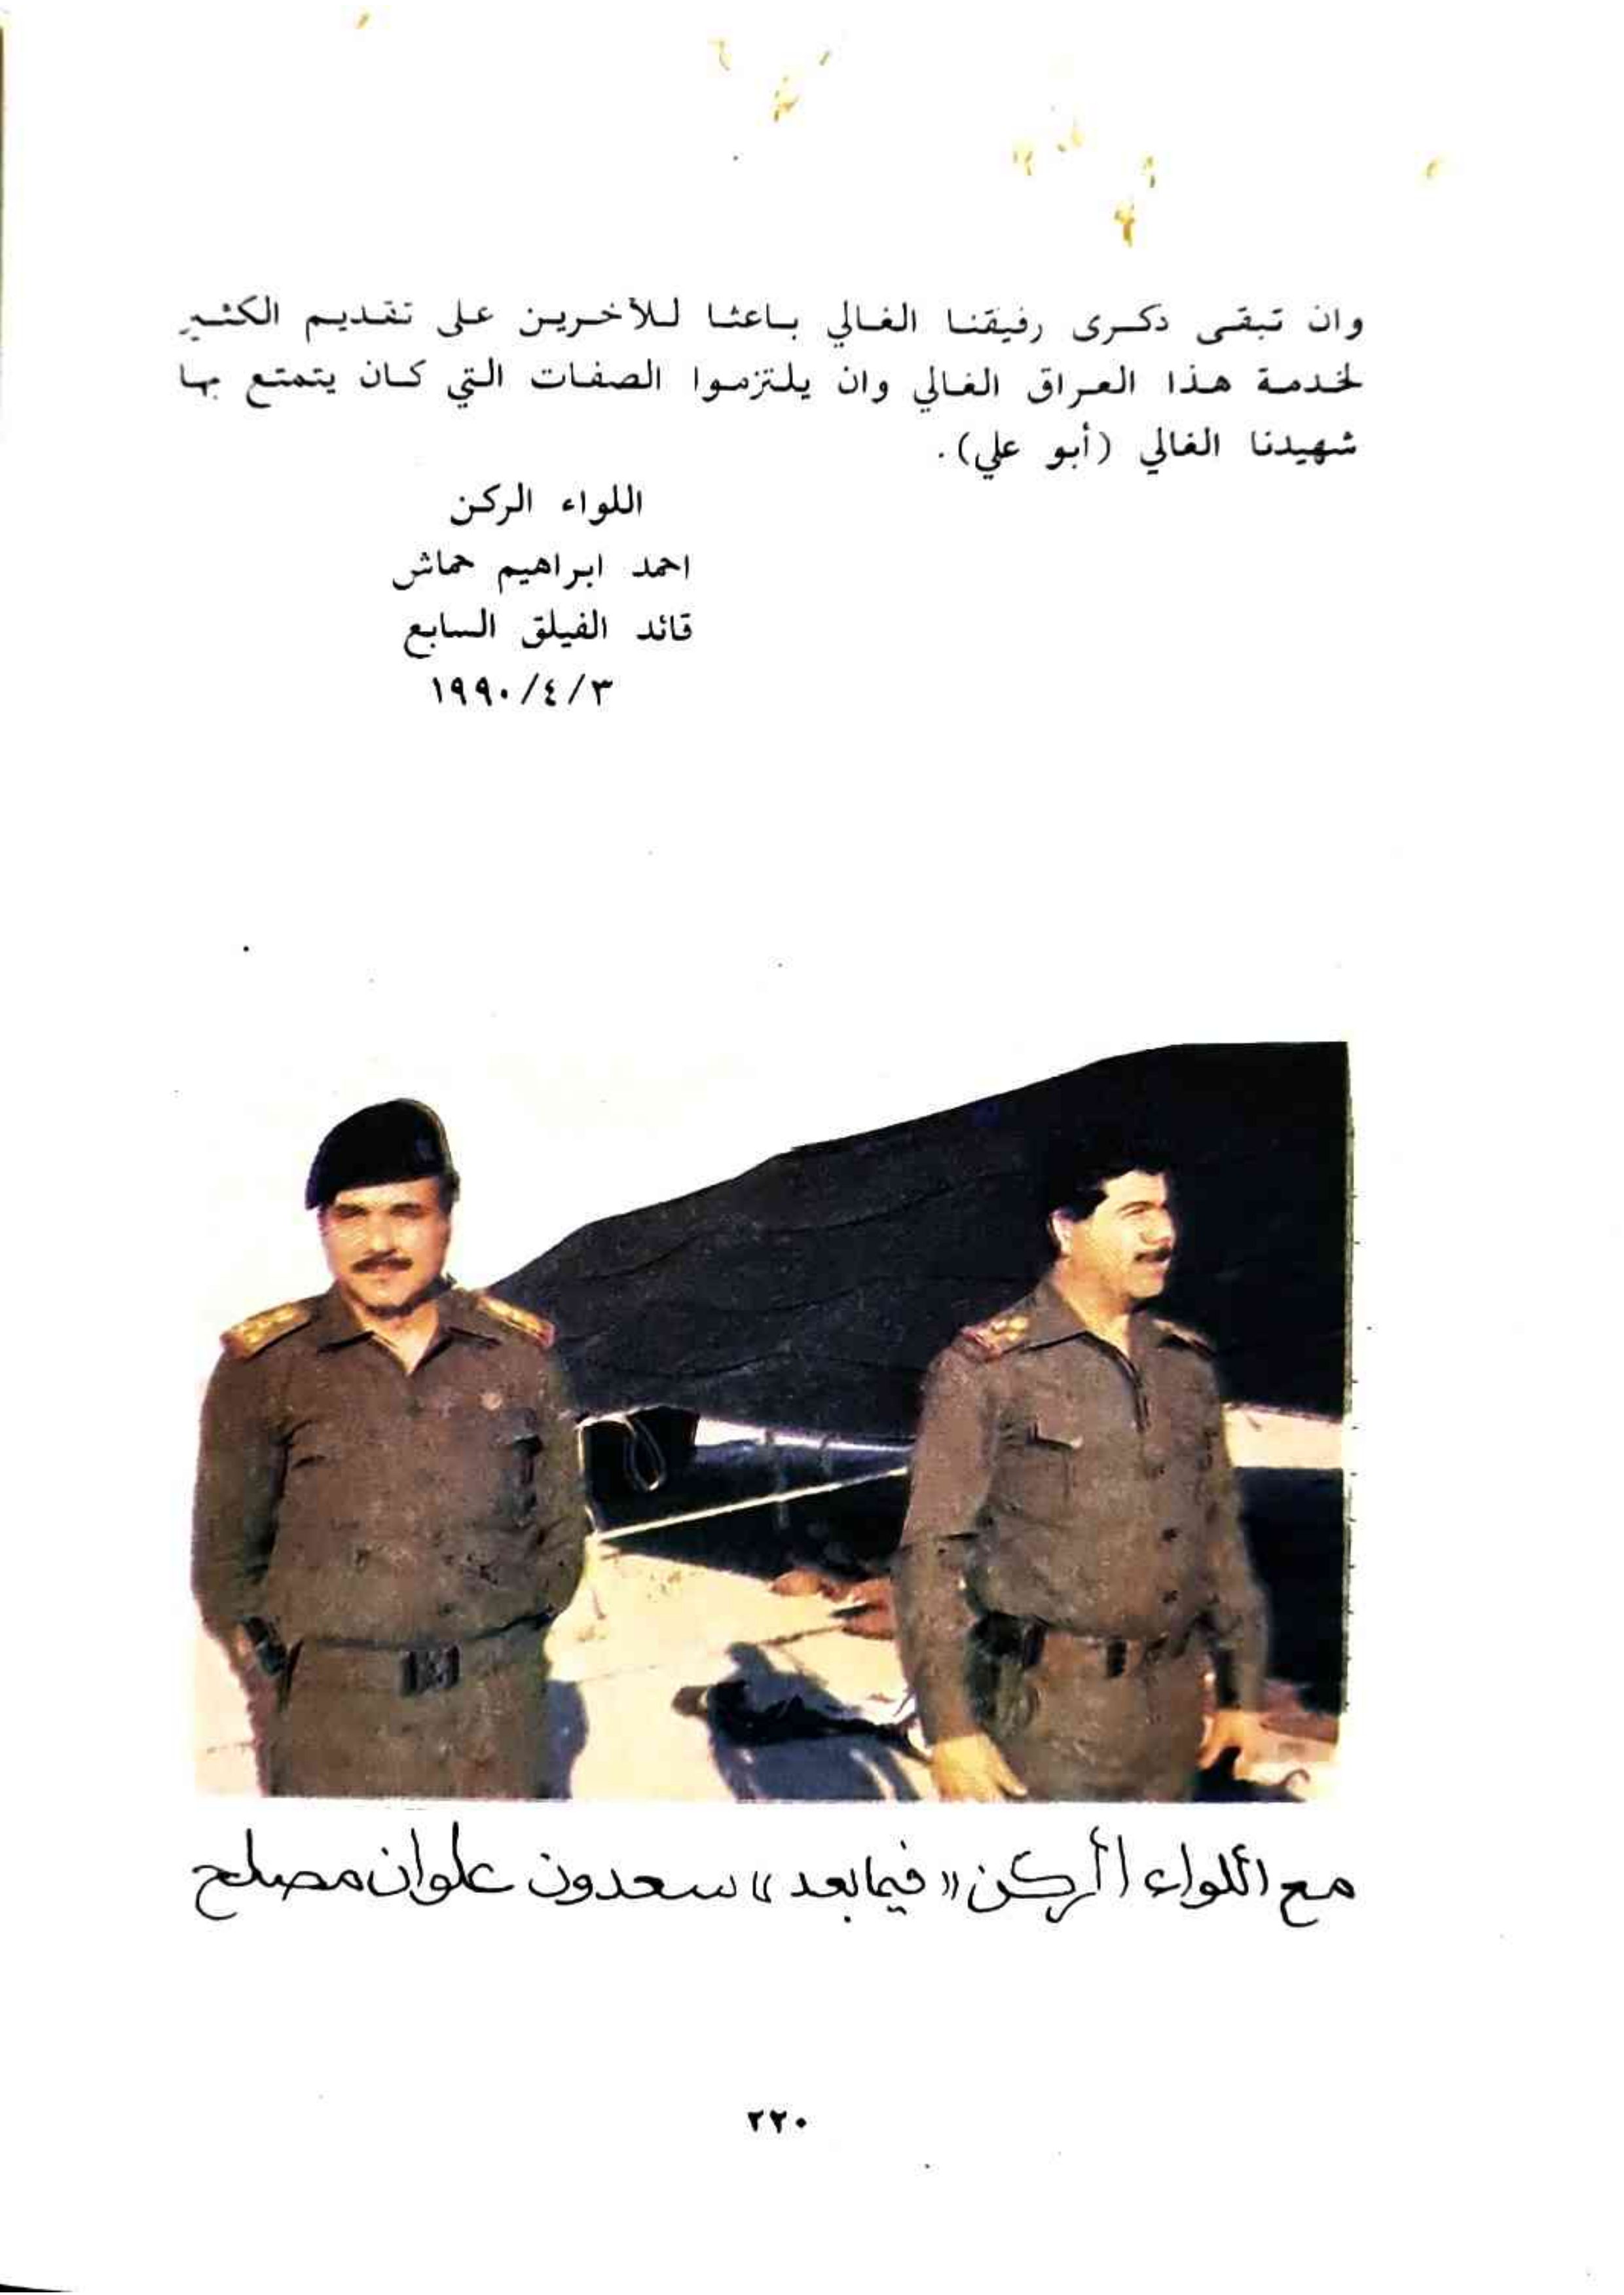 وان تبقى ذكرى رفيقنا الغالي باعثا للآخرين على تقديم الكثير
لخدمة هذا العراق الغالي وان يلتزموا الصفات التي كان يتمتع بها
شهيدنا الغالي (أبو علي).
اللواء الركن
احمد ابراهيم حماش
قائد الفيلق السابع
١٩٩٠/٤/٣
مع اللواء الركن «فيما بعد» سعدون علوان مصلح
٢٢٠